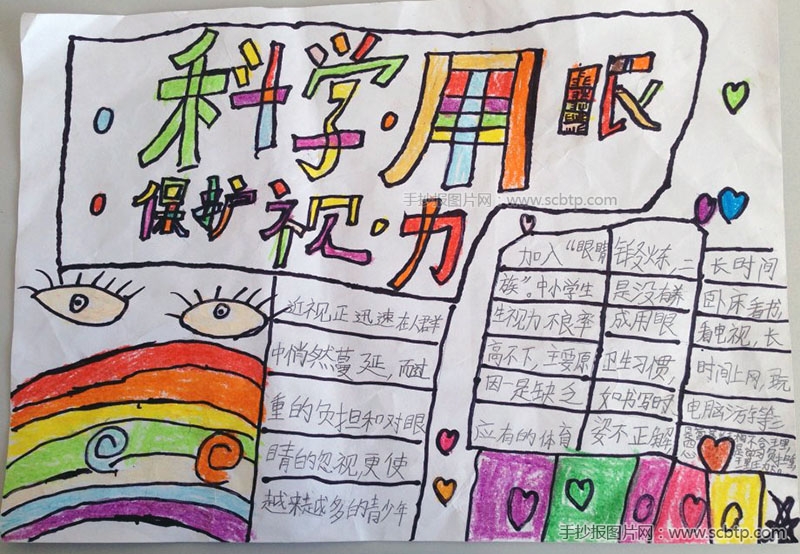 科学·用眼
手抄报图片网：www.scbtp.com
保护视·力
近视正迅速在人群
中悄然蔓延,而过
重的负担和对眼
睛的忽视,更使
越来越多的青少年
加入“眼睛
族”。中小学生
生视力不良率
高不下,主要原
因一是缺乏
应有的体育
锻炼,二
是没有养
成用眼
卫生习惯,
如书写的
姿不正解,
长时间
卧床看书
看电视,长
时间上网,玩
电脑等三
手抄报图片网：www.scbtp.com